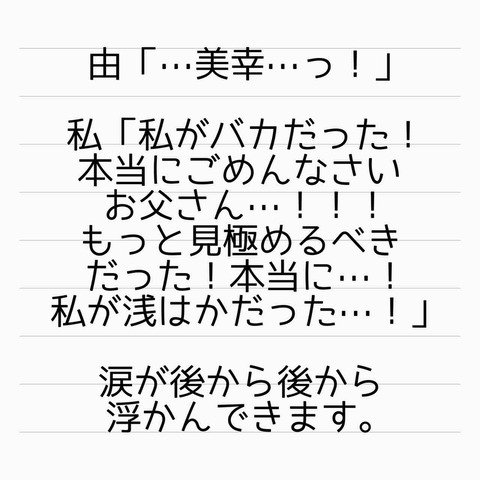 由「…美幸…っ！」
私「私がバカだった！
本当にごめんなさい
お父さん…！！！
もっと見極めるべき
だった！本当に…！
私が浅はかだった…！」
涙が後から後から
浮かんできます。